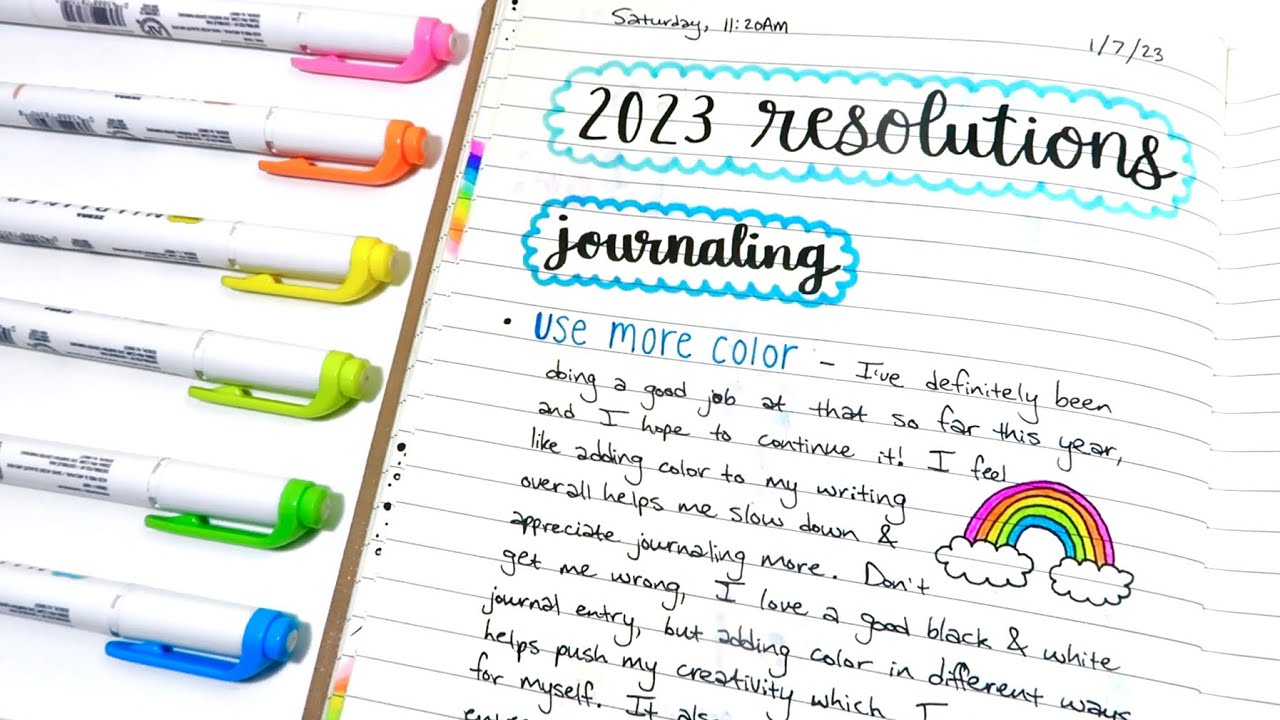 Saturday, 11:20AM
1/7/23
2023 resolutions
journaling
• use more color – I've definitely been
doing a good job at that so far this year,
and I hope to continue it! I feel
like adding color to my writing
overall helps me slow down &
appreciate journaling more. Don't
get me wrong, I love a good black & white
journal entry, but adding color in different ways
helps push my creativity which I
for myself. It also
ZEBRA
ZEBRA
MILDLINER